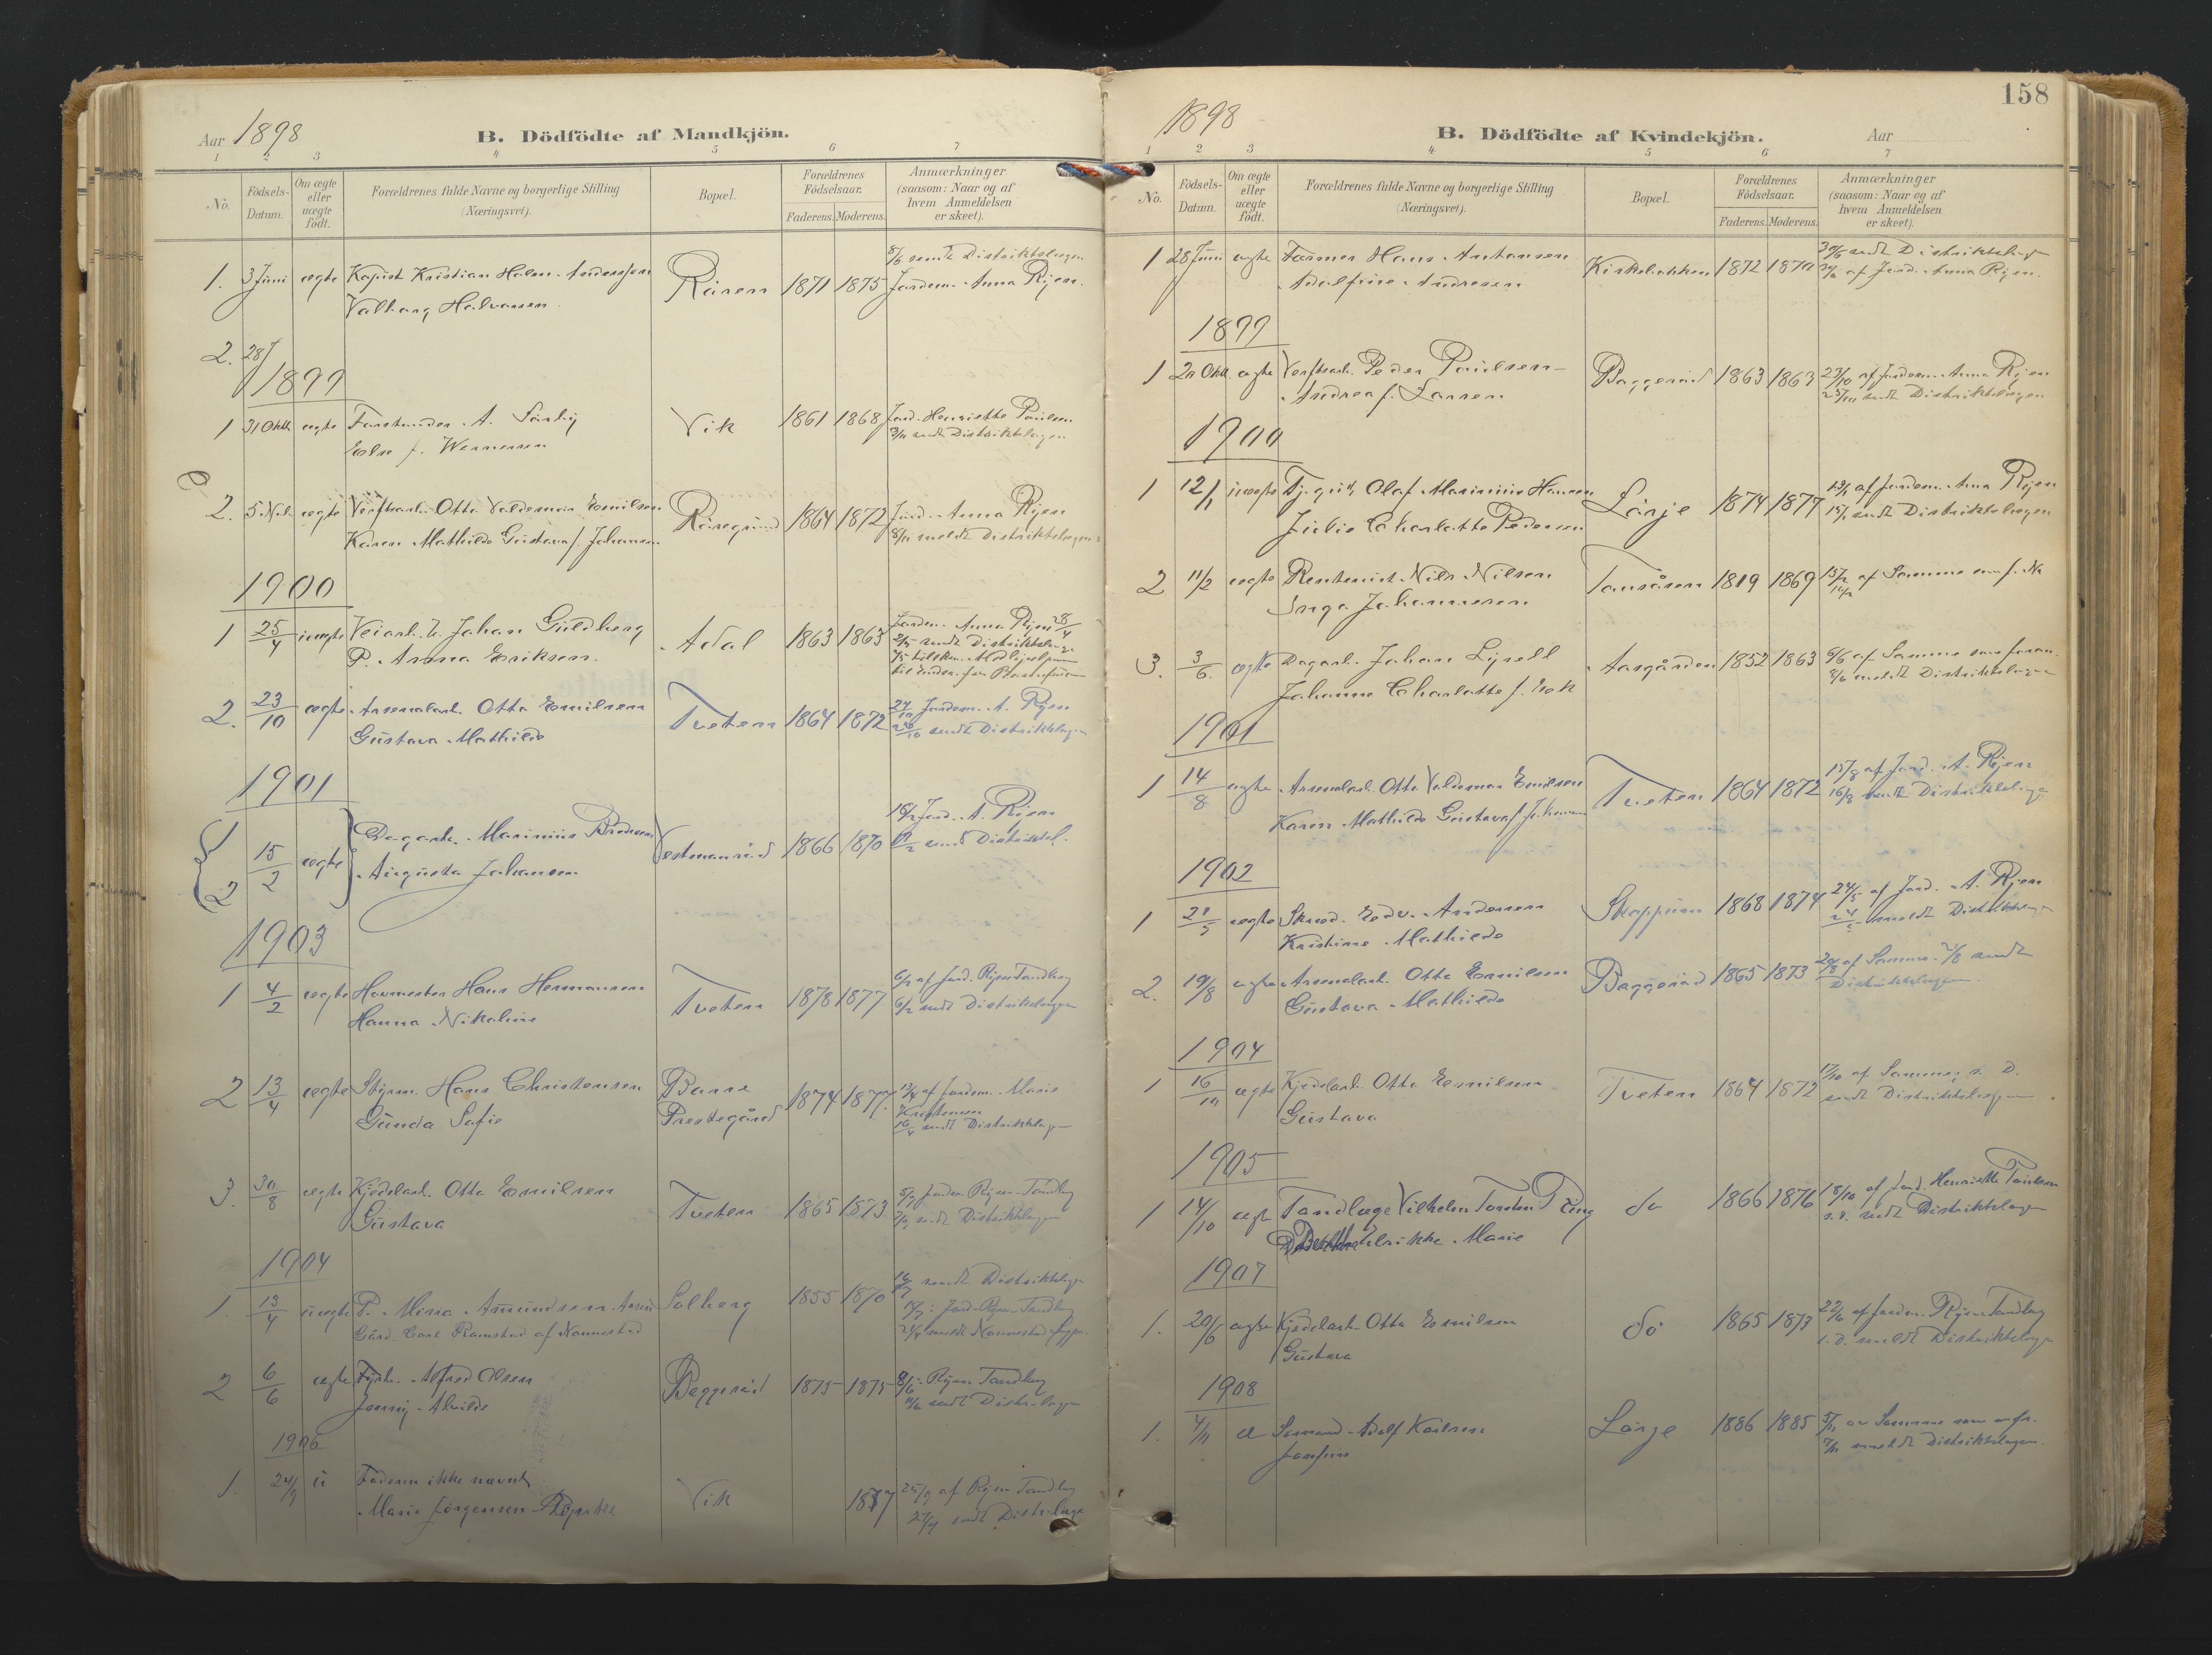 Aar 1898
B. Dödfödte af Mandkjön.
1 2 3 4 5 6 7
No.
Födsels-Datum.
Om ægte eller uægte födt.
Forældrenes fulde Navne og borgerlige Stilling
(Næringsvei).
Bopæl.
Forældrenes Födselsaar.
Faderens. Moderens.
Anmærkninger
(saasom: Naar og af
hvem Anmeldelsen
er skeet).
1. 3 Juni ægte Kristian Holm Anderssen Råren 1871 1875 8/6 sendt Distriktslægen
Valborg Halvorsen Jordem. Anna Rijen.
2. 28/
1899
1 31 Okt. ægte A. Vik 1861 1868 Jord. Henriette Paulsen
Else f. Wernersen sendt Distriktslægen
2. 5 Nov. ægte Verftsarb. Otto Valdemar Emilsen 1864 1872 Jord. Anna Rijen
Karen Mathilde Gustava f. Johansen 8/11 meldt Distriktslægen
1900
1 25/4 uægte Veiarb. Johan Guldberg Adal 1863 1863 Jordem. Anna Rijen 28/4
P. Anna Eriksen. sendt Distriktslægen
2. 23/10 ægte Arsenalarb. Otto Emilsen Tveten 1864 1872 24/10 Jordem. A. Rijen
Gustava Mathilde sendt Distriktslægen
1901
1
2 15/2 ægte Dagarb. Marinius 1866 1870 Jord. A. Rijen
Augusta Johansen sendt Distriktsl.
1903
1 4/2 ægte Hovmester Hans Hermansen Tveten 1878 1877 6/2 af Jord. Rijen Tandberg
Hanna Nikoline 6/2 sendt Distriktslægen
2 13/4 ægte Styrm. Hans Christensen Borre 1874 1877. af Jordem. Marie
Gunda Sofie Prestegård Kristensen
16/4 sendt Distriktslægen
3. 30/8 ægte Kjedelarb. Otto Emilsen Tveten 1865 1873 5/9 Jordem Rijen-Tandberg
Gustava sendt Distriktslægen
1904
1. 13/4 uægte P. Mina Amundsen Solberg 1855 1870 sendt Distriktslægen
Carl Ramstad af Nannestad Jord. Rijen-Tandberg
meldt Nannestad
2 6/6 ægte Fyrb. Alfred Olsen Baggerød 1875 1875 8/6 Rijen Tandberg
Jenny Alvilde sendt Distr.lægen
1906
1. 24/9 u Faderen ikke nævnt Vik 1877 25/9 af Rijen Tandberg
Marie Jörgensen 27/9 sendt Distr.lægen
158
1898
B. Dödfödte af Kvindekjön.
Aar
1 2 3 4 5 6 7
No.
Födsels-Datum.
Om ægte eller uægte födt.
Forældrenes fulde Navne og borgerlige Stilling
(Næringsvei).
Bopæl.
Forældrenes Födselsaar.
Faderens. Moderens.
Anmærkninger
(saasom: Naar og af
hvem Anmeldelsen
er skeet).
1 28 Juni ægte Hans Antonsen Kirkebakken 1872 1870 30/6 sendt Distriktslægen
Adolfine Andresen af Jord. Anna Rijen.
1899
1 20 Okt. ægte Verftsarb. Peder Paulsen Baggerød 1863 1863 23/10 af Jordem. Anna Rijen
Andrea f. Larsen sendt Distriktslægen
1900
1 12/1 uægte Olaf Marinius Hansen Lörje 1874 1877 af Jordem. Anna Rijen
Julie Charlotte Pedersen 15/1 sendt Distriktslægen
2 11/2 ægte Rentenist Nils Nilsen 1819 1869 15/2 af Samme
Inga Johannesen
3. 3/6 ægte Dagarb. Johan Lysell Aasgården 1852 1863 6/6 af Samme som foran.
Johanne Charlotte f. Eek 8/6 meldt Distriktslægen
1901
1 14/8 ægte Arsenalarb. Otto Valdemar Emilsen Tveten 1864 1872 15/8 af Jord. A. Rijen
Karen Mathilde Gustava f. Johansen 16/8 sendt Distriktslægen
1902
1 21/5 ægte Skræd. Edv. Andersen Skoppum 1868 1874 24/5 af Jord. A. Rijen
Kristine Mathilde 24/5 meldt Distriktslægen
2. 19/8 ægte Arsenalarb. Otto Emilsen Baggerød 1865 1873 20/8 af Samme. sendt
Gustava Mathilde Distriktslægen.
1904
1 16/10 ægte Kjedelarb. Otto Emilsen Tveten 1864 1872 17/10 af Samme, s. D.
Gustava sendt Distriktslægen
1905
1 14/10 ægte Tandlæge Vilhelm Torsten do 1866 1876 18/10 af Jord. Henriette Paulsen
Ulrikke Marie s. d. sendt Distriktslægen
1907
1. 20/6 ægte Kjedelarb. Otto Emilsen do 1865 1873 22/6 af Jordm. Rijen Tandberg
Gustava s. d. meldt Distriktslægen
1908
1. 4/11 æ Sömand Adolf Karlsen Lörje 1886 1885 5/11 av Samme som ovfr.
Josefine 7/11 meldt Distriktslægen.